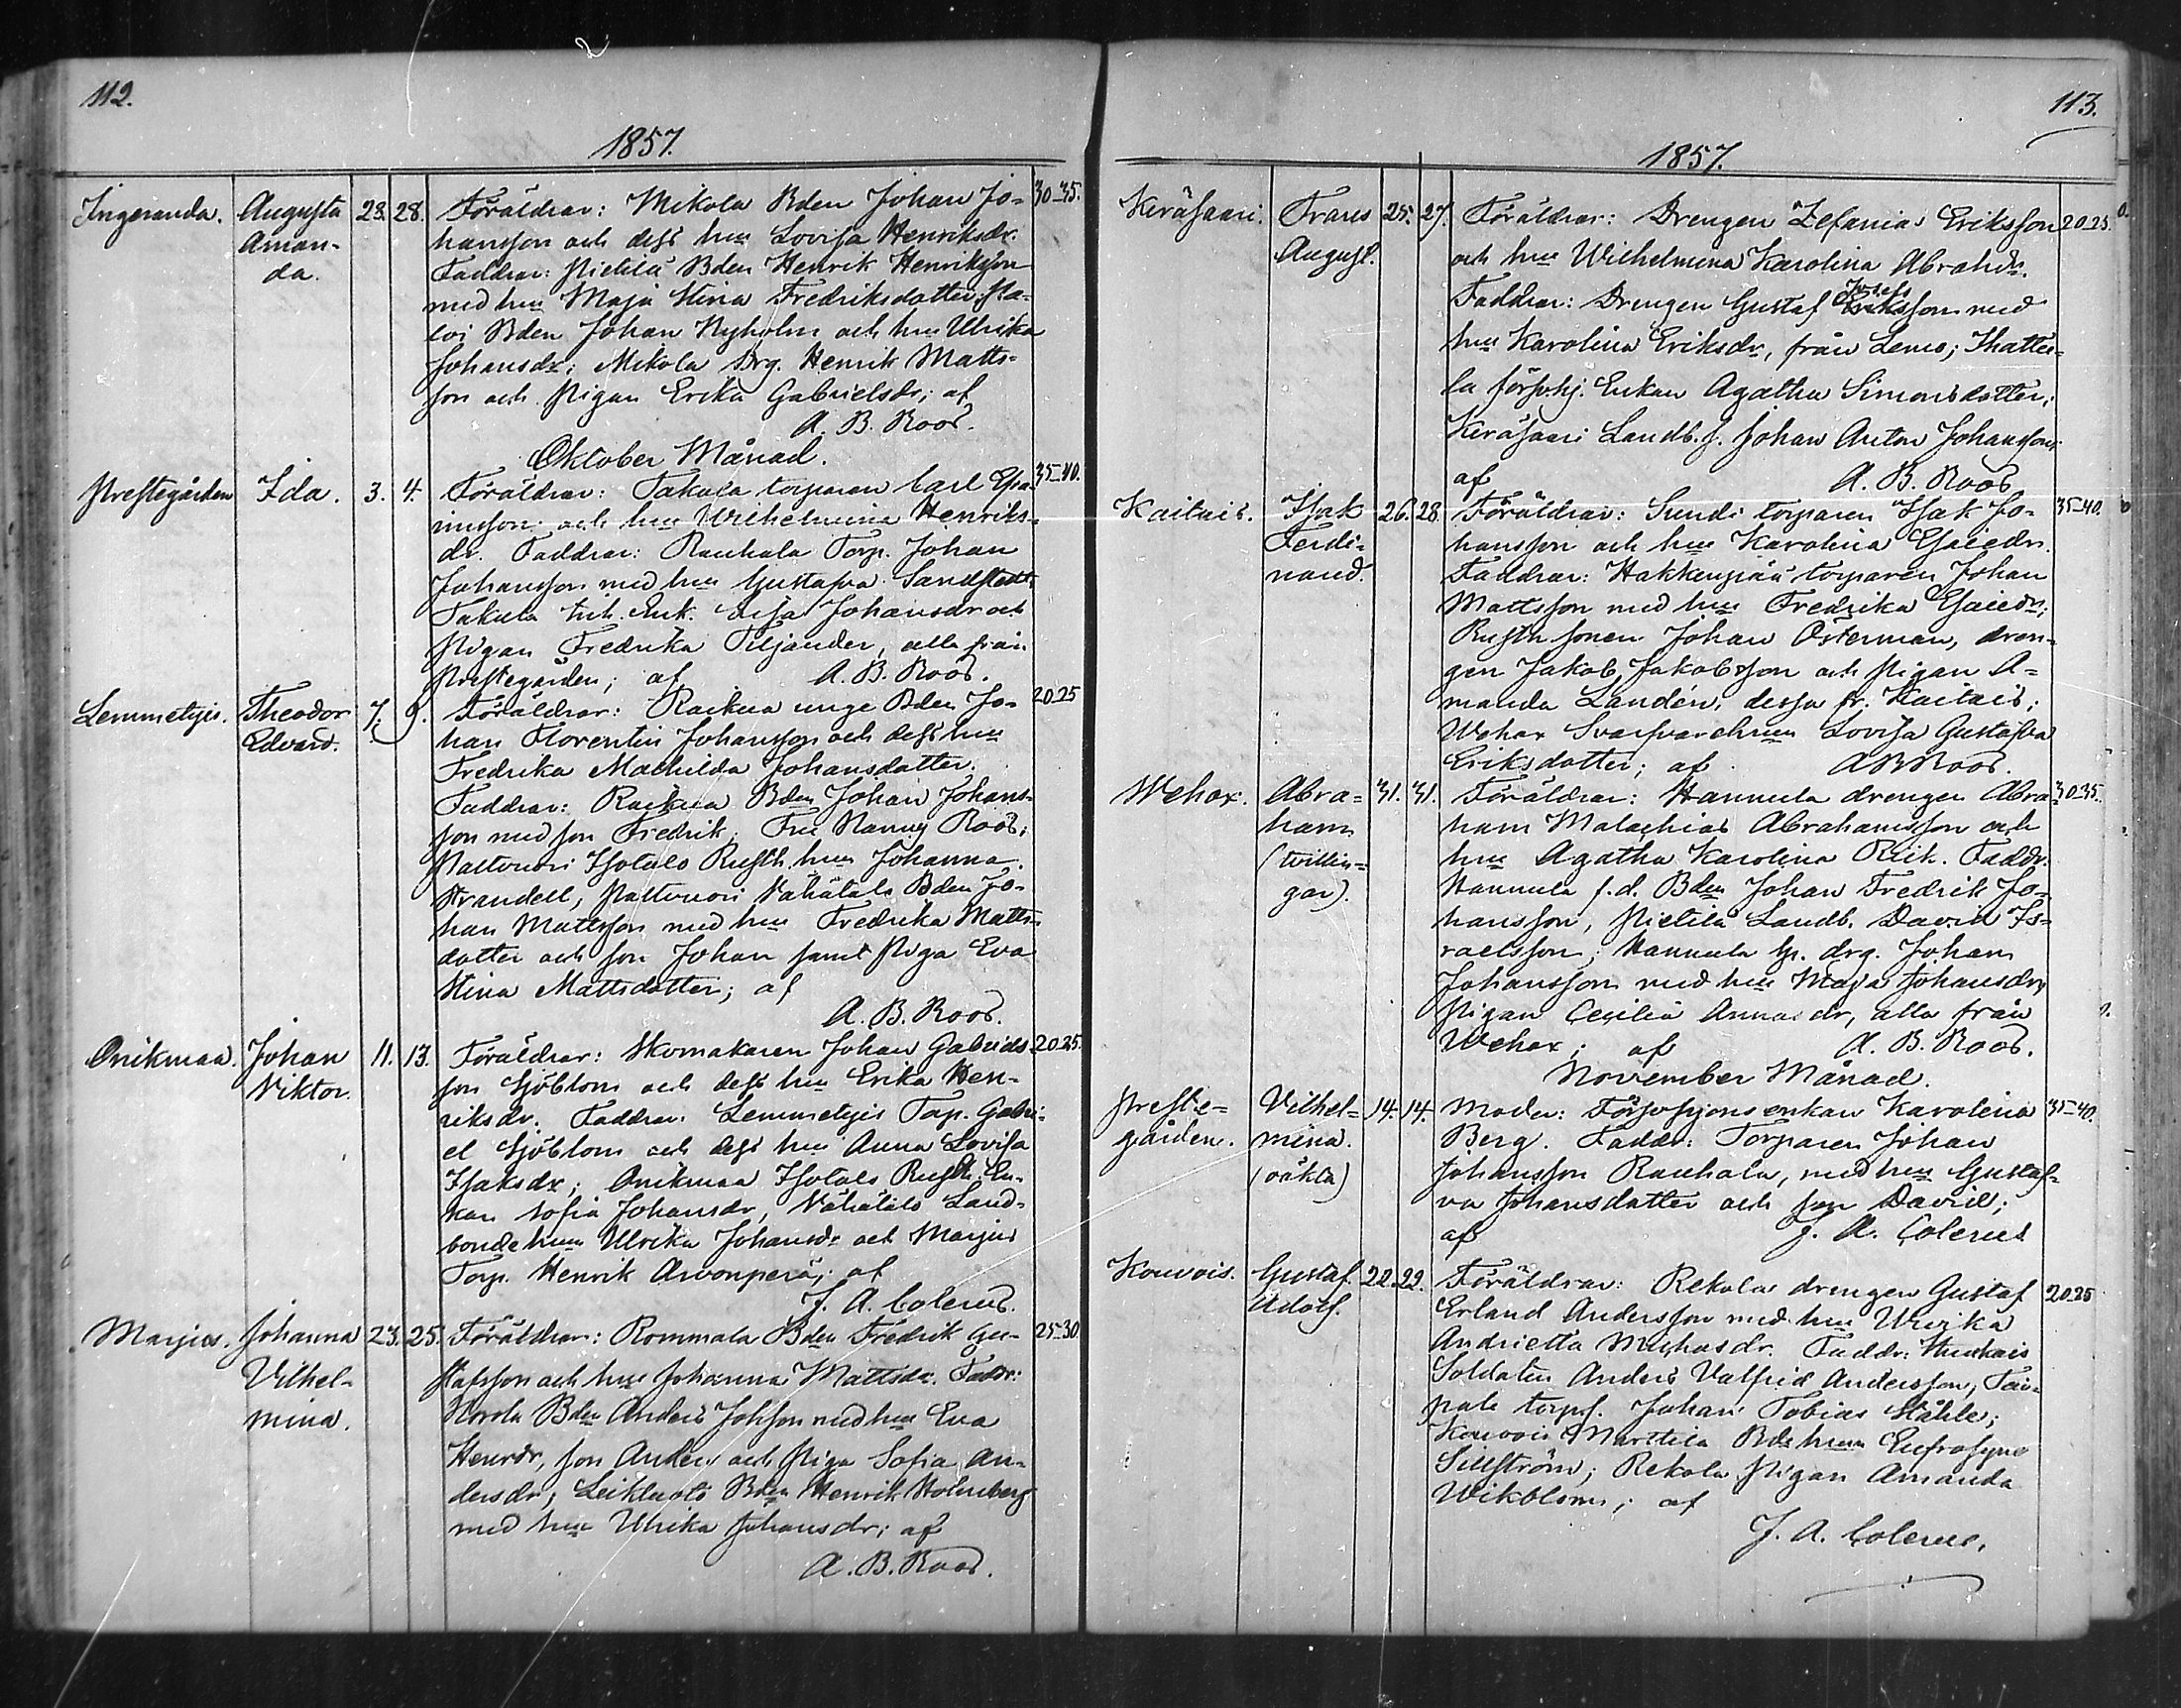 112.
1857.
Ingeranda. Augusta Amanda. 23. 28. Föräldrar: Mikola Bden Johan Jo= 30-35.
hansson och dess hu Lovisa Henriksdr.
Faddrar: Pietilä Bden Henrik Henriksson
med hu Maja Stina Fredriksdotter;
Bden Johan Nyholm och hu Ulrika
Johansdr; Mikola Drg. Henrik Matts=
son och Pigan Erika Gabrielsdr; af
A. B. Roos.
Oktober Månad.
Prestegården Ida. 3. 4. Föräldrar: Takala torparen Carl Esa= 35-40.
iasson och hu Wilhelmina Henriks=
dr. Faddrar: Rauhala Torp. Johan
Johansson med hu Gustafva Sandstedt,
Takula Enk. Johansdr och
Pigan Fredrika Tiljander, alla från
Prestegården; af A. B. Roos.
Lemmetyis. Theodor Edvard. 7. 9. Föräldrar: unge Bden Jo= 20.25
han Florentin Johansson och dess hu
Fredrika Mathilda Johansdotter.
Faddrar: Bden Johan Johans=
son med son Fredrik; Nanny Roos;
Pattvuori Isotalo Rusth. hu Johanna
Strandell, Pattvuori Vähätalo Bden Jo=
han Mattsson med hu Fredrika Matts=
dotter och son Johan samt Piga Eva
Stina Mattsdotter; af
A. B. Roos.
Onikmaa. Johan Viktor. 11. 13. Föräldrar: Skomakaren Johan Gabriels 20.25.
son Sjöblom och dess hu Erika Hen=
riksdr. Faddrar: Lemmetyis Torp. Gabri=
el Sjöblom och dess hu Anna Lovisa
Isaksdr; Onikmaa Isotalo Rusth. En=
kan Sofia Johansdr, Vähätalo Land=
bonde hu Ulrika Johansdr och Marjus
Torp. Henrik Arvonperä; af
J. A. Colerus.
Marjus. Johanna Vilhel=mina. 23. 25. Föräldrar: Rommala Bden Fredrik Gu= 25-30.
stafsson och hu Johanna Mattsdr. Faddr:
Norola Bden Anders Johsson med hu Eva
Henrdr, son Anders och Piga Sofia An=
dersdr; Leikluoto Bden Henrik Holmberg
med hu Ulrika Johansdr; af
A. B. Roos.
113.
1857.
Keräsaari. Frans August. 25. 27. Föräldrar: Drengen Zefanias Eriksson 20.25.
och hu Wilhelmina Karolina Abrahdr.
Josefs
Faddrar: Drengen Gustaf Eriksson med
hu Karolina Eriksdr, från Lemo;
Enkan Agatha Simonsdotter;
Keräsaari Landb. s. Johan Anton Johansson;
af A. B. Roos
Kaitais. Isak Ferdi=nand. 26. 28. Föräldrar: Sundi torparen Isak Jo= 35-40.
hansson och hu Karolina Esaiedr.
Faddrar: Hakkenpää torparen Johan
Mattsson med hu Fredrika Esaiedr;
Rusth sonen Johan Österman, dren=
gen Jakob Jakobsson och Pigan A=
manda Landén, dessa fr. Kaitais;
Wehax Svarfvarehun Lovisa Gustafva
Eriksdotter; af A B Roos.
Wehax. Abra=ham (tvillin=gar). 31. 31. Föräldrar: Hannula drengen Abra= 30.35.
ham Malachias Abrahamsson och
hu Agatha Karolina Faddr:
Hannula f.d. Bden Johan Fredrik Jo=
hansson, Pietilä Landb. David Is=
raelsson; Hannula drg. Johan
Johansson med hu Maja Johansdr,
Pigan Cecilia Annasdr, alla från
Wehax; af A. B. Roos.
November Månad.
Preste=gården. Vilhel=mina. (oäkta) 14. 14. Moder: Försvspionsenkan Karolina 35-40.
Berg. Faddr: Torparen Johan
Johansson Rauhala, med hu Gustaf=
va Johansdotter och son David;
af J. A. Colerus
Kouvois. Gustaf Adolf. 22. 22. Föräldrar: Rekola drengen Gustaf 20.25
Erland Andersson med hu Ulrika
Andrietta Michasdr. Faddr:
Soldaten Anders Valfrid Andersson,
torps. Johan Tobias Ståhle;
Kouvois Marttila Bdehun Eufrosyne
Sillström; Rekola Pigan Amanda
Wikblom; af
J. A. Colerus.